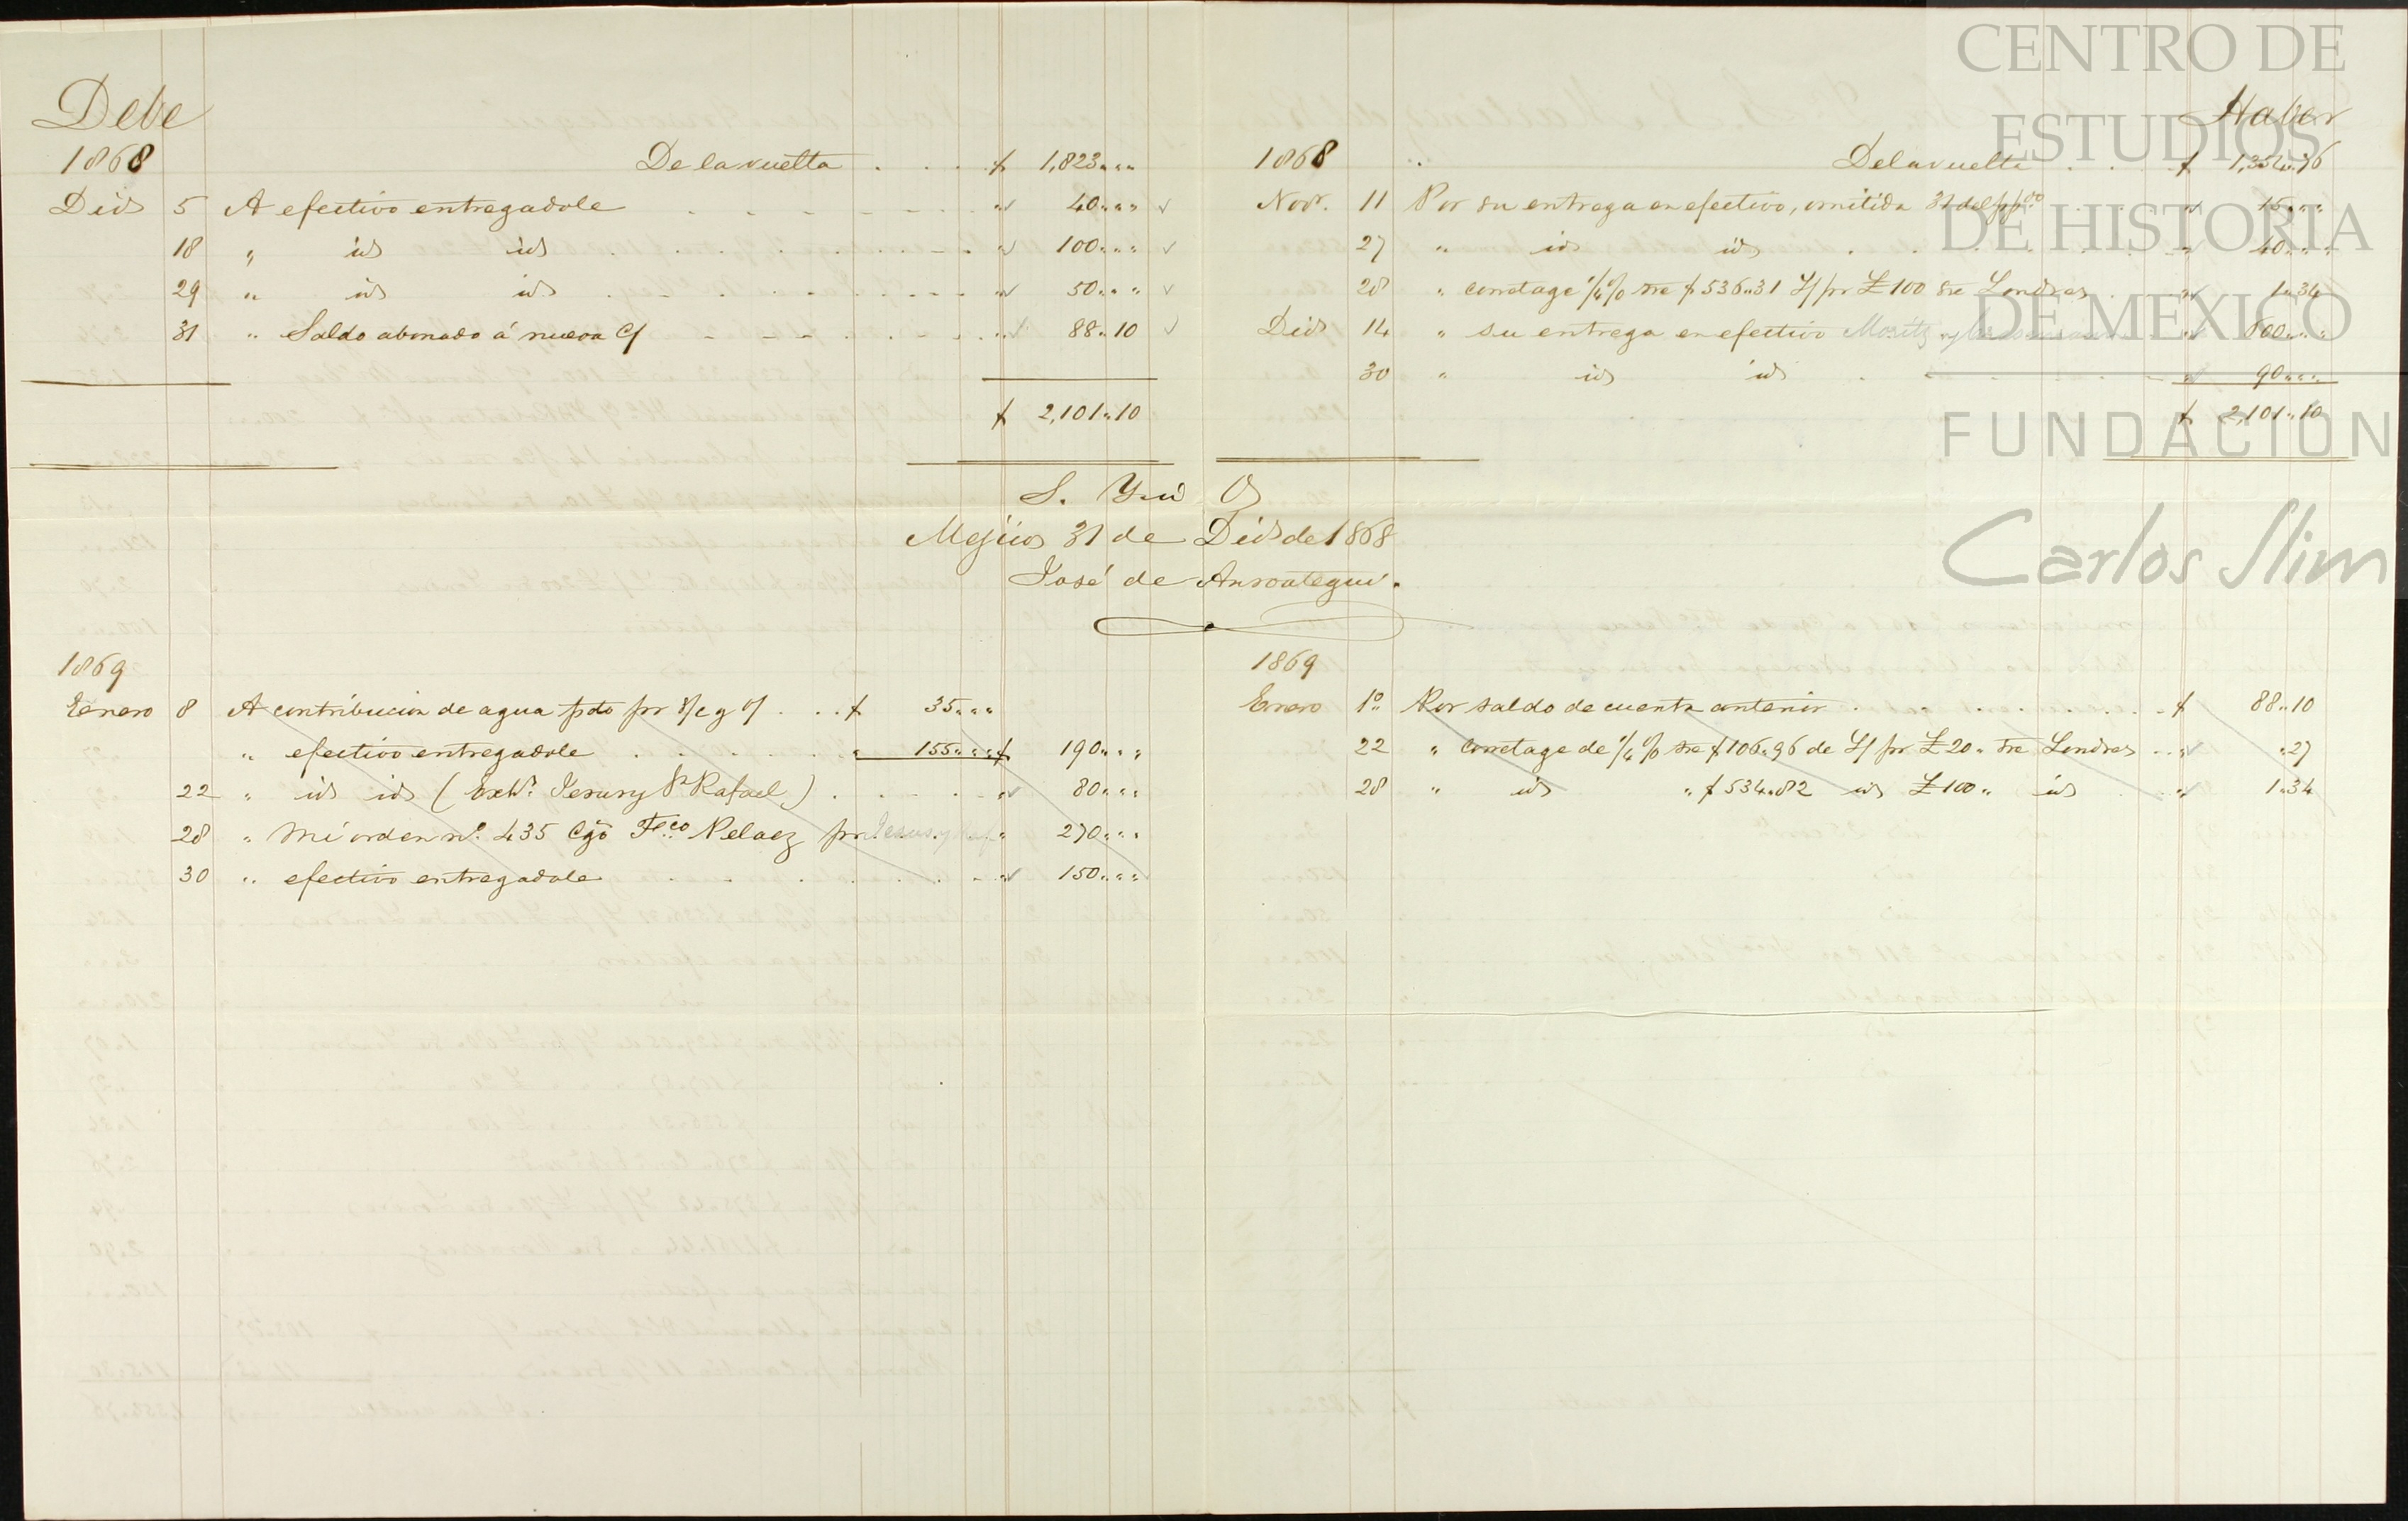 Debe
1868
De la vuelta . . . . $ 1,823 " "
Dic 5 A efectivo entregadole " 40 " "
18 " id id " 100 " "
29 " id id " 50 " "
31 " Saldo abonado á nueva C/ " 88 " 10
$ 2,101 " 10
Haber
1868
De la vuelta . . $ 1,354 " 76
Novr. 11 Por su entrega en efectivo, omitida 31 del ppdo " 15 " "
27 " id id " 40 " "
28 " corretage 1/4 % sre $ 536 " 31 L/ pr £ 100 sre Londres " 1 " 34
Dic 14 " su entrega en efectivo " 600 " "
30 " id id " 90 " "
$ 2,101 " 10
S. Y. ú O.
Mejico 31 de Dic de 1868
José de Ansoategui.
1869
Enero 8 A contribucion de agua pdo pr s/c y o/ . . . $ 35 " "
" efectivo entregadole " 155 " " $ 190 " "
22 " id id ( Jesus y Sn Rafael ) " 80 " "
28 " mi orden nº 435 cgo Fco Pelaez pr Jesus y " 270 " "
30 " efectivo entregadole " 150 " "
1869
Enero 1º Por saldo de cuenta anterior $ 88 " 10
22 " corretage de 1/4 % sre $ 106 " 96 de L/ pr £ 20 " sre Londres " " 27
28 " id " $ 534 " 82 id £ 100 " id " 1 " 34
CENTRO DE
ESTUDIOS
DE HISTORIA
DE MEXICO
FUNDACION
Carlos Slim